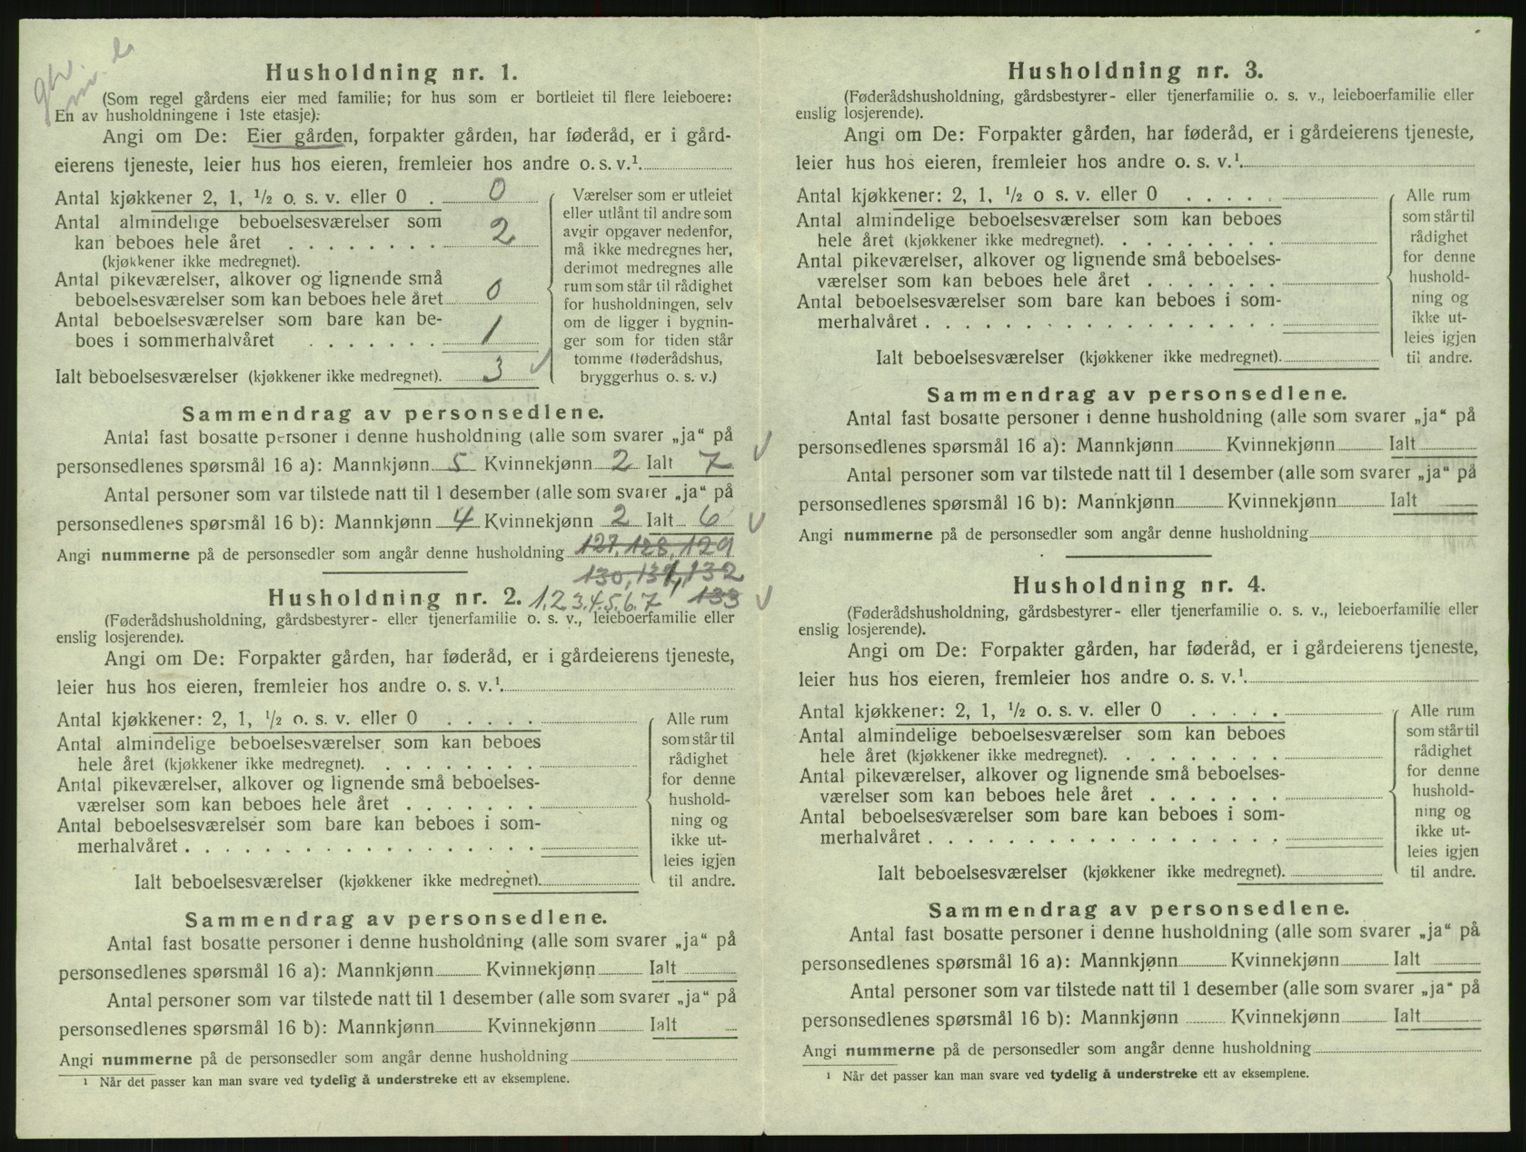 Husholdning nr. 1.
(Som regel gårdens eier med familie; for hus som er bortleiet til flere leieboere:
En av husholdningene i 1ste etasje):
Angi om De: Eier gården, forpakter gården, har føderåd, er i gård-
eierens tjeneste, leier hus hos eieren, fremleier hos andre o. s. v.¹
Antal kjøkkener 2, 1, ½ o. s. v. eller 0 . 0
Antal almindelige beboelsesværelser som
kan beboes hele året . . . . . . . . 2
(kjøkkener ikke medregnet).
Antal pikeværelser, alkover og lignende små
beboelsesværelser som kan beboes hele året 0
Antal beboelsesværelser som bare kan be-
boes i sommerhalvåret . . . . . . . 1
Ialt beboelsesværelser (kjøkkener ikke medregnet). 3
Værelser som er utleiet
eller utlånt til andre som
avgir opgaver nedenfor,
må ikke medregnes her,
derimot medregnes alle
rum som står til rådighet
for husholdningen, selv
om de ligger i bygnin-
ger som for tiden står
tomme (føderådshus,
bryggerhus o. s. v.)
Sammendrag av personsedlene.
Antal fast bosatte personer i denne husholdning (alle som svarer „ja“ på
personsedlenes spørsmål 16 a): Mannkjønn 5 Kvinnekjønn 2 Ialt 7
Antal personer som var tilstede natt til 1 desember (alle som svarer „ja“ på
personsedlenes spørsmål 16 b): Mannkjønn 4 Kvinnekjønn 2 Ialt 6
Angi nummerne på de personsedler som angår denne husholdning 127, 128, 129
130, 131, 132
133
1, 2, 3, 4, 5, 6, 7
Husholdning nr. 2.
(Føderådshusholdning, gårdsbestyrer- eller tjenerfamilie o. s. v., leieboerfamilie eller
enslig losjerende).
Angi om De: Forpakter gården, har føderåd, er i gårdeierens tjeneste,
leier hus hos eieren, fremleier hos andre o. s. v.¹
Antal kjøkkener: 2, 1, ½ o. s. v. eller 0 . . . . .
Antal almindelige beboelsesværelser som kan beboes
hele året (kjøkkener ikke medregnet). . . . . . . . .
Antal pikeværelser, alkover og lignende små beboelses-
værelser som kan beboes hele året . . . . . . .
Antal beboelsesværelser som bare kan beboes i som-
merhalvåret . . . . . . . . . . . . . . . . . .
Ialt beboelsesværelser (kjøkkener ikke medregnet).
Alle rum
som står til
rådighet
for denne
hushold-
ning og
ikke ut-
leies igjen
til andre.
Sammendrag av personsedlene.
Antal fast bosatte personer i denne husholdning (alle som svarer „ja“ på
personsedlenes spørsmål 16 a): Mannkjønn Kvinnekjønn Ialt
Antal personer som var tilstede natt til 1 desember (alle som svarer „ja“ på
personsedlenes spørsmål 16 b): Mannkjønn Kvinnekjønn Ialt
Angi nummerne på de personsedler som angår denne husholdning
¹ Når det passer kan man svare ved tydelig å understreke ett av eksemplene.
Husholdning nr. 3.
(Føderådshusholdning, gårdsbestyrer- eller tjenerfamilie o. s. v., leieboerfamilie eller
enslig losjerende).
Angi om De: Forpakter gården, har føderåd, er i gårdeierens tjeneste,
leier hus hos eieren, fremleier hos andre o. s. v.¹
Antal kjøkkener: 2, 1, ½ o s. v. eller 0 . . . . .
Antal almindelige beboelsesværelser som kan beboes
hele året (kjøkkener ikke medregnet). . . . . . . . .
Antal pikeværelser, alkover og lignende små beboelses-
værelser som kan beboes hele året . . . . . . .
Antal beboelsesværelser som bare kan beboes i som-
merhalvåret . . . . . . . . . . . . . . . . . .
Ialt beboelsesværelser (kjøkkener ikke medregnet).
Alle rum
som står til
rådighet
for denne
hushold-
ning og
ikke ut-
leies igjen
til andre.
Sammendrag av personsedlene.
Antal fast bosatte personer i denne husholdning (alle som svarer „ja“ på
personsedlenes spørsmål 16 a): Mannkjønn Kvinnekjønn Ialt
Antal personer som var tilstede natt til 1 desember (alle som svarer „ja“ på
personsedlenes spørsmål 16 b): Mannkjønn Kvinnekjønn Ialt
Angi nummerne på de personsedler som angår denne husholdning
Husholdning nr. 4.
(Føderådshusholdning, gårdsbestyrer- eller tjenerfamilie o. s. v., leieboerfamilie eller
enslig losjerende).
Angi om De: Forpakter gården, har føderåd, er i gårdeierens tjeneste,
leier hus hos eieren, fremleier hos andre o. s. v.¹
Antal kjøkkener: 2, 1, ½ o. s. v. eller 0 . . . . .
Antal almindelige beboelsesværelser som kan beboes
hele året (kjøkkener ikke medregnet). . . . . . . . .
Antal pikeværelser, alkover og lignende små beboelses-
værelser som kan beboes hele året . . . . . . .
Antal beboelsesværelser som bare kan beboes i som-
merhalvåret . . . . . . . . . . . . . . . . . .
Ialt beboelsesværelser (kjøkkener ikke medregnet).
Alle rum
som står til
rådighet
for denne
hushold-
ning og
ikke ut-
leies igjen
til andre.
Sammendrag av personsedlene.
Antal fast bosatte personer i denne husholdning (alle som svarer „ja“ på
personsedlenes spørsmål 16 a): Mannkjønn Kvinnekjønn Ialt
Antal personer som var tilstede natt til 1 desember (alle som svarer „ja“ på
personsedlenes spørsmål 16 b): Mannkjønn Kvinnekjønn Ialt
Angi nummerne på de personsedler som angår denne husholdning
¹ Når det passer kan man svare ved tydelig å understreke ett av eksemplene.